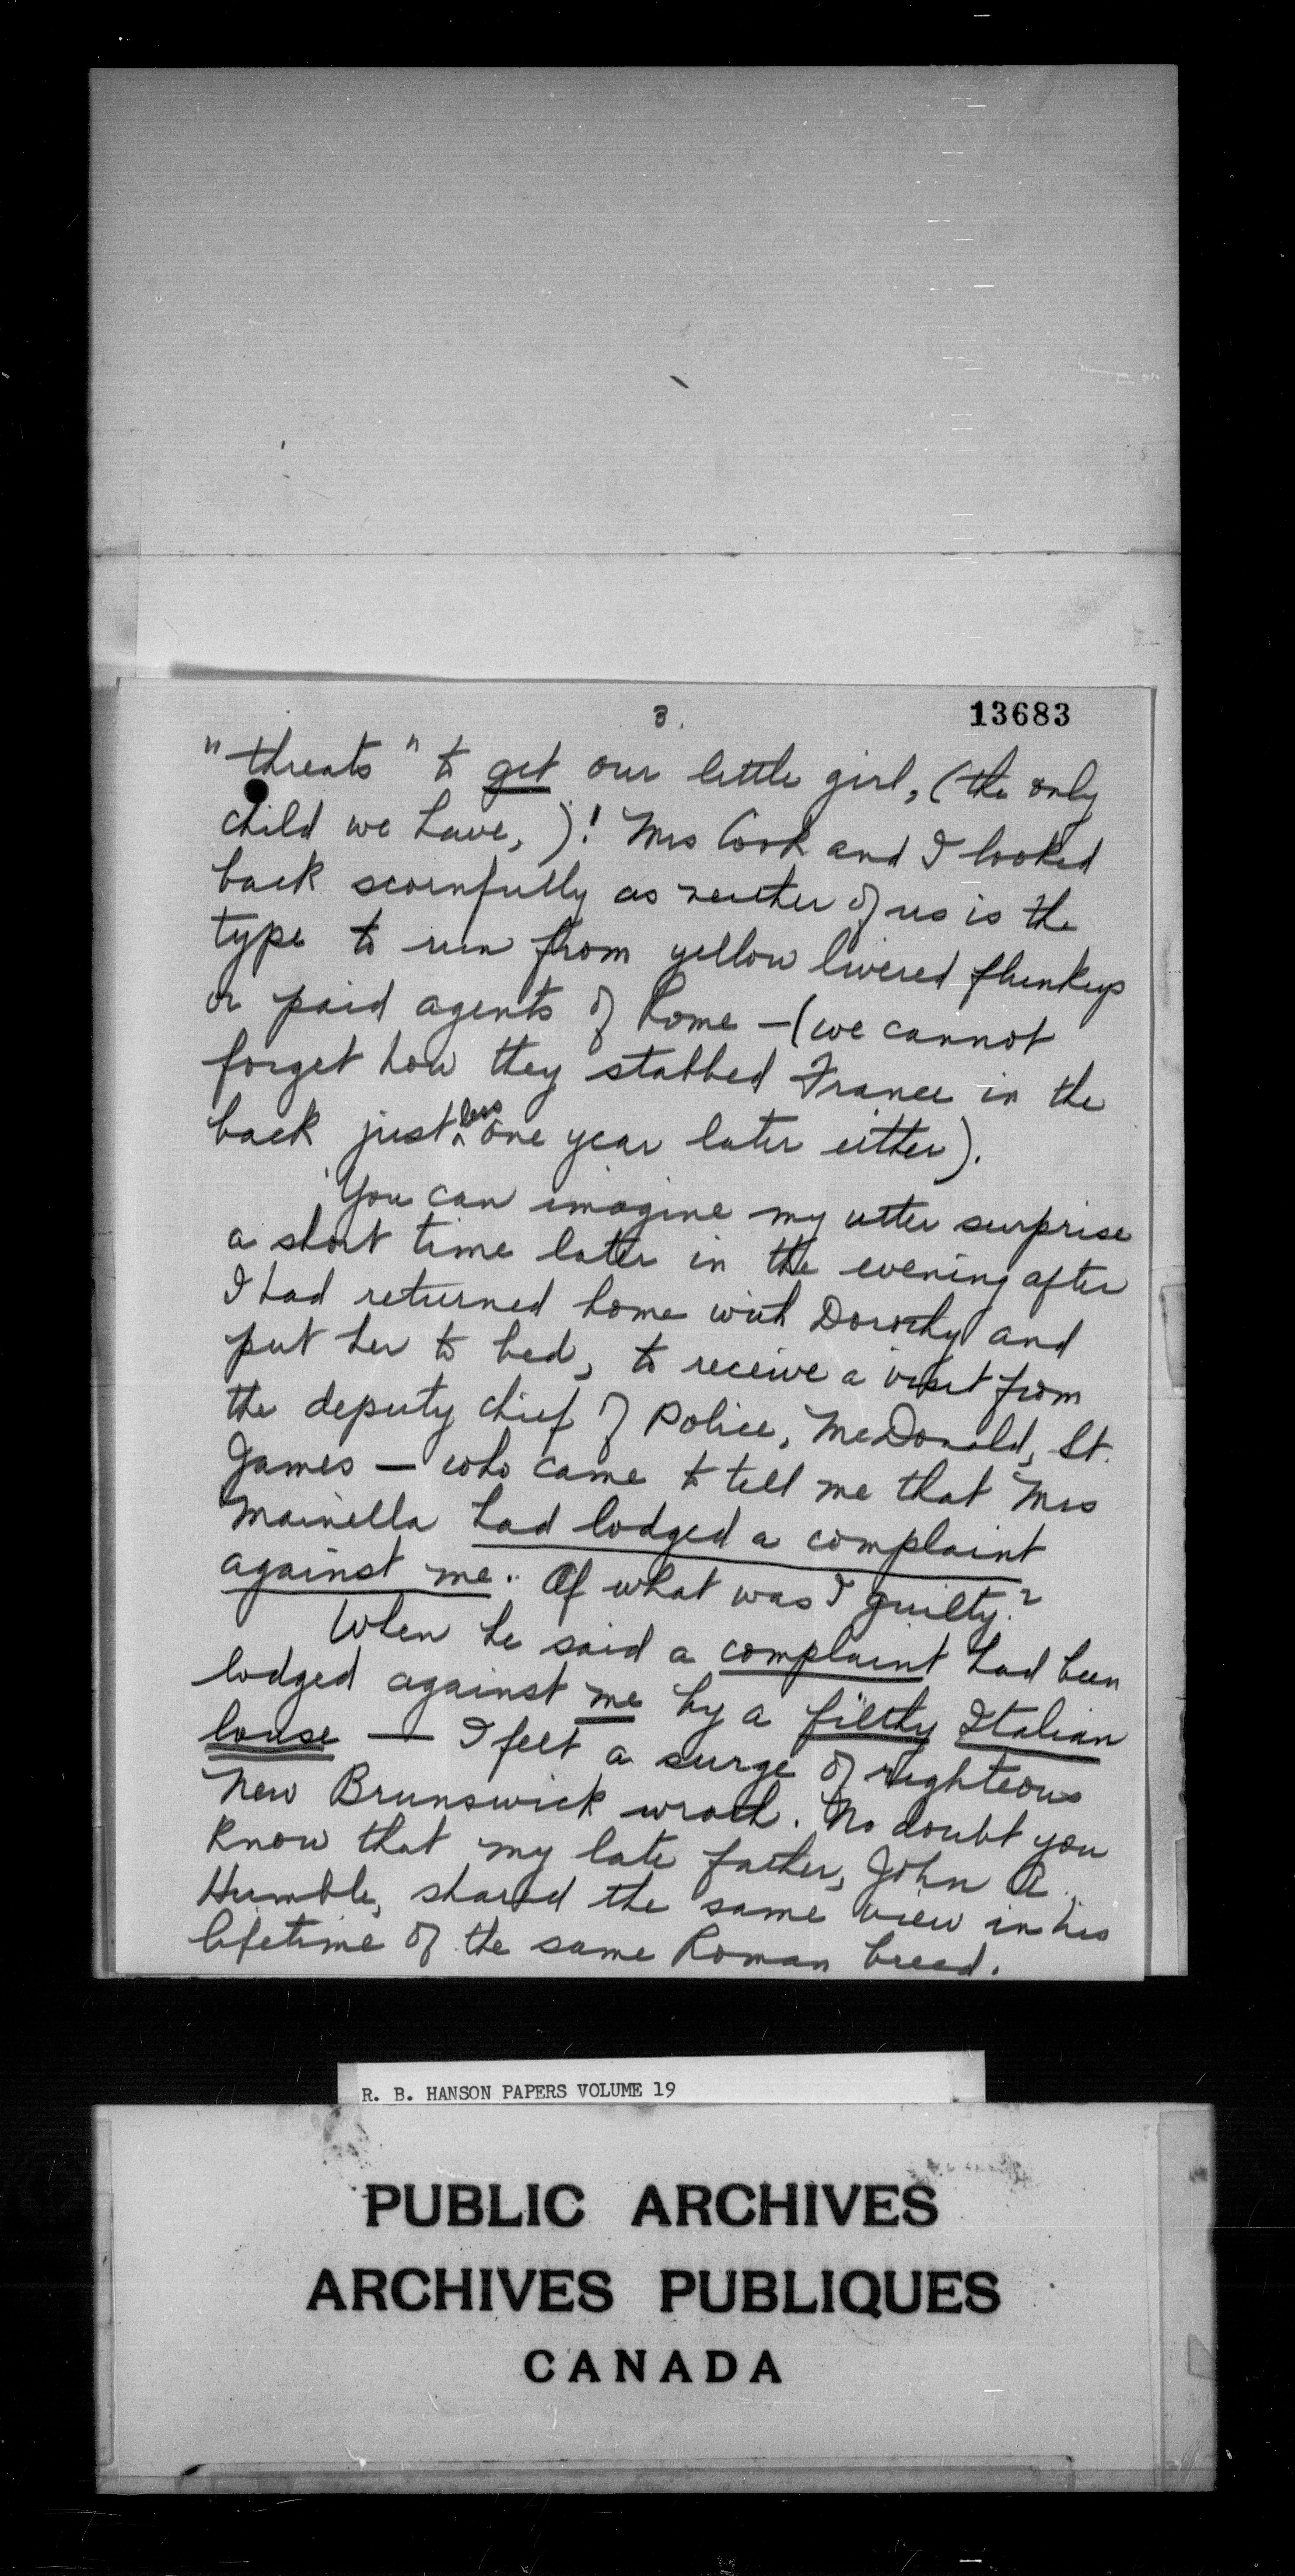 3.
13683
"threats" to get our little girl, (the only
child we have,)! Mrs Cook and I looked
back scornfully as neither of us is the
type to run from yellow livered flunkeys
or paid agents of Rome — (we cannot
forget how they stabbed France in the
back just less one year later either).
You can imagine my utter surprise
a short time later in the evening after
I had returned home with Dorothy and
put her to bed, to receive a visit from
the deputy chief of Police, McDonald, St.
James — who came to tell me that Mrs
Mainella had lodged a complaint
against me. Of what was I guilty?
When he said a complaint had been
lodged against me by a filthy Italian
louse — I felt a surge of righteous
New Brunswick wrath. No doubt you
know that my late father, John A.
Humble, shared the same view in his
lifetime of the same Roman breed.
R. B. HANSON PAPERS VOLUME 19
PUBLIC ARCHIVES
ARCHIVES PUBLIQUES
CANADA